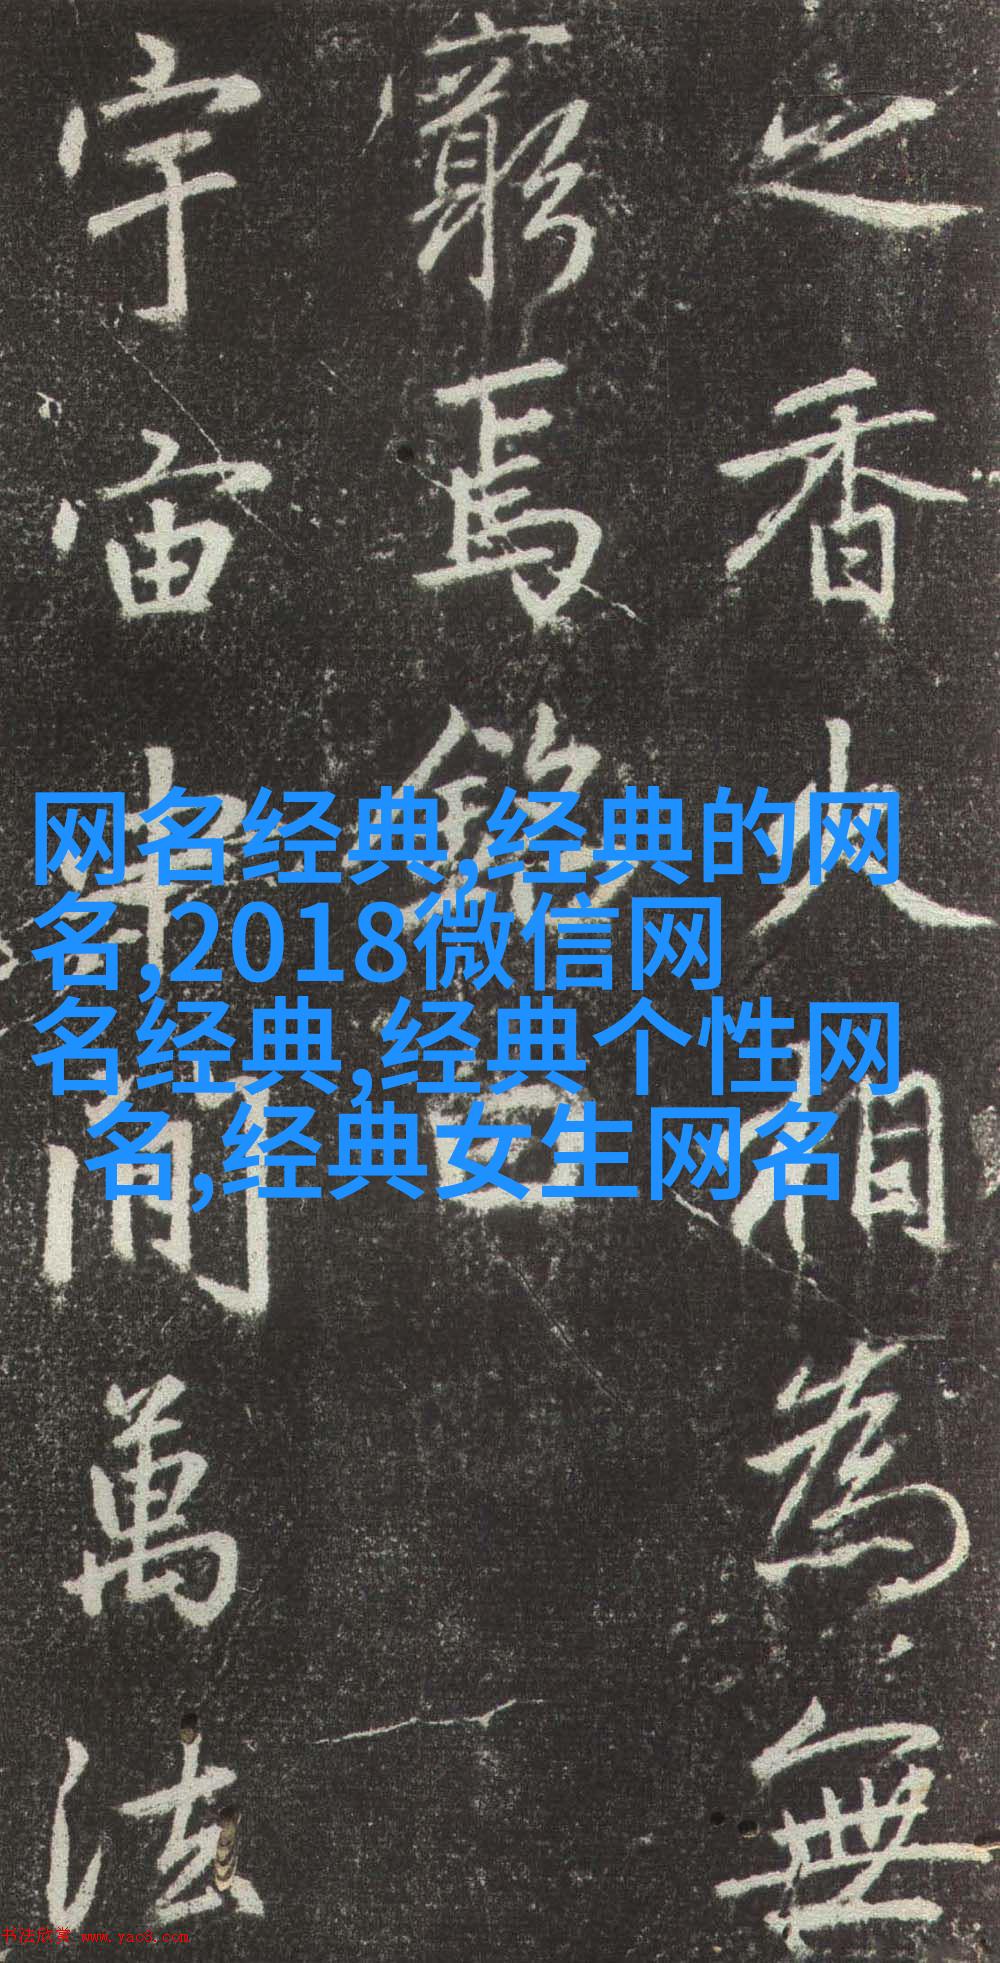 之香火相為無
窮焉銘曰
宇宙間萬法
网名经典,经典的网
名,2018微信网
名经典,经典个性网
名,经典女生网名
书法欣赏 www.yac8.com